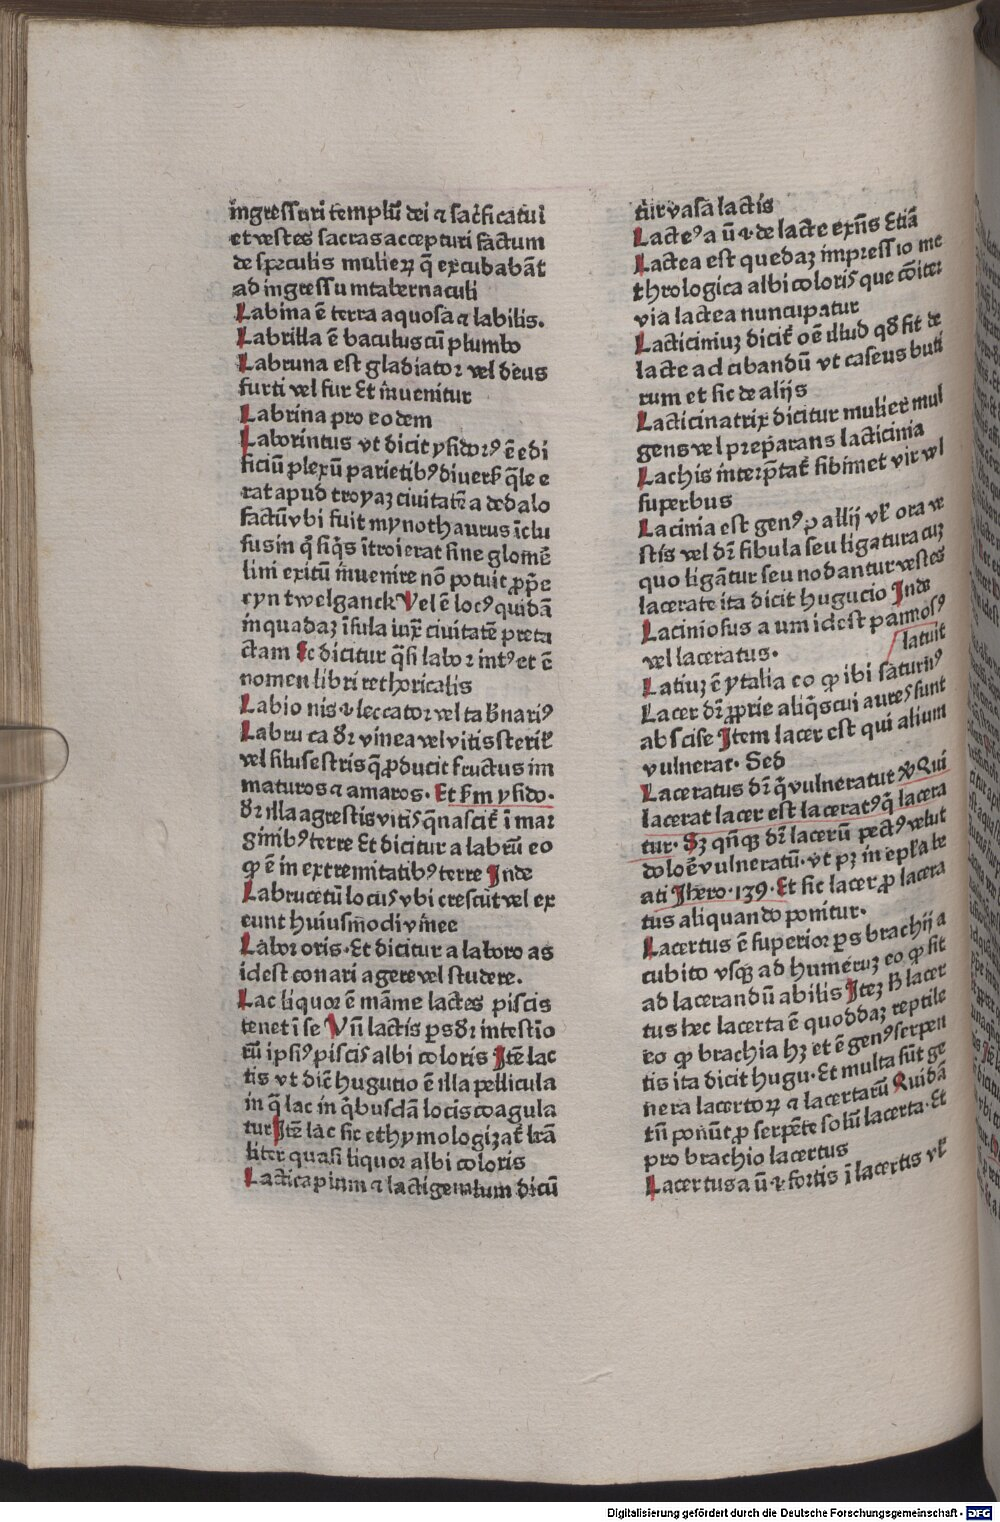 ingressuri templū dei ⁊ sac̄ficatuī
et vestes sacras accepturi factum
de speculis mulieꝝ q̄ excubabāt
ad ingressum tabernaculi
Labina ē terra aquosa ⁊ labilis.
Labrilla ē baculus cū plumbo
Labruna est gladiator vel deus
furti vel fur Et īnuenitur
Labrina pro eodem
Laborintus vt dicit ysidorꝰ ē edi
ficiū plexū parietibꝰ diuers̄ q̄le e
rat apud troyaꝫ ciuitatē a dedalo
factū vbi fuit mynothaurus īclu
fus in q̄ siq̄s ītroierat sine glomē
lini exitū inuenire nō potuit ꝓp̄e
eyn twelganck Vel ē locꝰ quidā
in quadaꝫ īsula iuxͣ ciuitatē preta
ctam Et dicitur q̄si labor intꝰ et ē
nomen libri rethoricalis
Labio nis ⁊ leccator vel tab̄nariꝰ
Labruca dr̄ vinea vel vitis sterił
vel siluestris q̄ ꝓducit fructus im
maturos ⁊ amaros. Et s̄m ysido.
dr̄ illa agrestis vitis q̄ nascit̄ ī mar
ginibꝰ terre Et dicitur a labrū eo
ꝙ ē in extremitatibꝰ terre Inde
Labrucetū locus vbi crescūt vel ex
eunt huiusmodi vinee
Labor oris. Et dicitur a laboro as
idest conari agere vel studere.
Lac liquor ē māme lactes piscis
tenet ī se Vn̄ lactis ꝑs dr̄ intestīo
rū ipsiꝰ piscis albi coloris Itē lac
tis vt dic̄ hugutio ē illa pellicula
in q̄ lac in q̄busdā locis coagula
tur Itē lac sic ethymologizat̄ lr̄a
liter quasi liquor albi coloris
Lacticapium ⁊ lactigerulum dicū
tur vasa lactis
Lacteꝰ a ū ⁊ de lacte exn̄s Etiā
Lactea est quedaꝫ impressio me
thrologica albi coloris que cōiter
via lactea nuncupatur
Lacticiniuꝫ dicit̄ oē illud qd̄ fit de
lacte ad cibandū vt caseus buti
rum et sic de alijs
Lacticinatrix dicitur mulier mul
gens vel preparans lacticinia
Lachis interp̄tat̄ sibimet vir vel
superbus
Lacinia est genꝰ pallij vł ora ve
stis vel dr̄ fibula seu ligatura cuꝫ
quo ligāntur seu nodantur vestes
lacerate ita dicit hugucio Inde
Laciniosus a um idest pannosꝰ
vel laceratus.
latuit
Latiuꝫ ē ytalia eo ꝙ ibi saturnꝰ
Lacer dr̄ ꝓprie aliq̄s cui aures sunt
abscise Item lacer est qui alium
vulnerat. Sed
Laceratus dr̄ q̄ vulneratur Qui
lacerat lacer est laceratꝰ q̄ lacera
tur. Sꝫ qn̄qꝫ dr̄ lacerū pectꝰ velut
dolo ē vulneratū. vt pꝫ in epl̄a be
ati Ihero. 139. Et sic lacer ꝓ lacera
tus aliquando ponitur.
Lacertus ē superior ꝑs brachij a
cubito vsqꝫ ad humeruꝫ eo ꝙ fit
ad lacerandū abilis Iteꝫ h̄ lacer
tus hec lacerta ē quoddaꝫ reptile
eo ꝙ brachia hꝫ et ē genꝰ serpen
tis ita dicit hugu. Et multa sūt ge
nera lacertoꝝ ⁊ lacertarū Quidā
tn̄ ponūt ꝓ serpēte solū lacerta. Et
pro brachio lacertus
Lacertus a ū ⁊ fortis ī lacertis vł
Digitalisierung gefördert durch die Deutsche Forschungsgemeinschaft - DFG